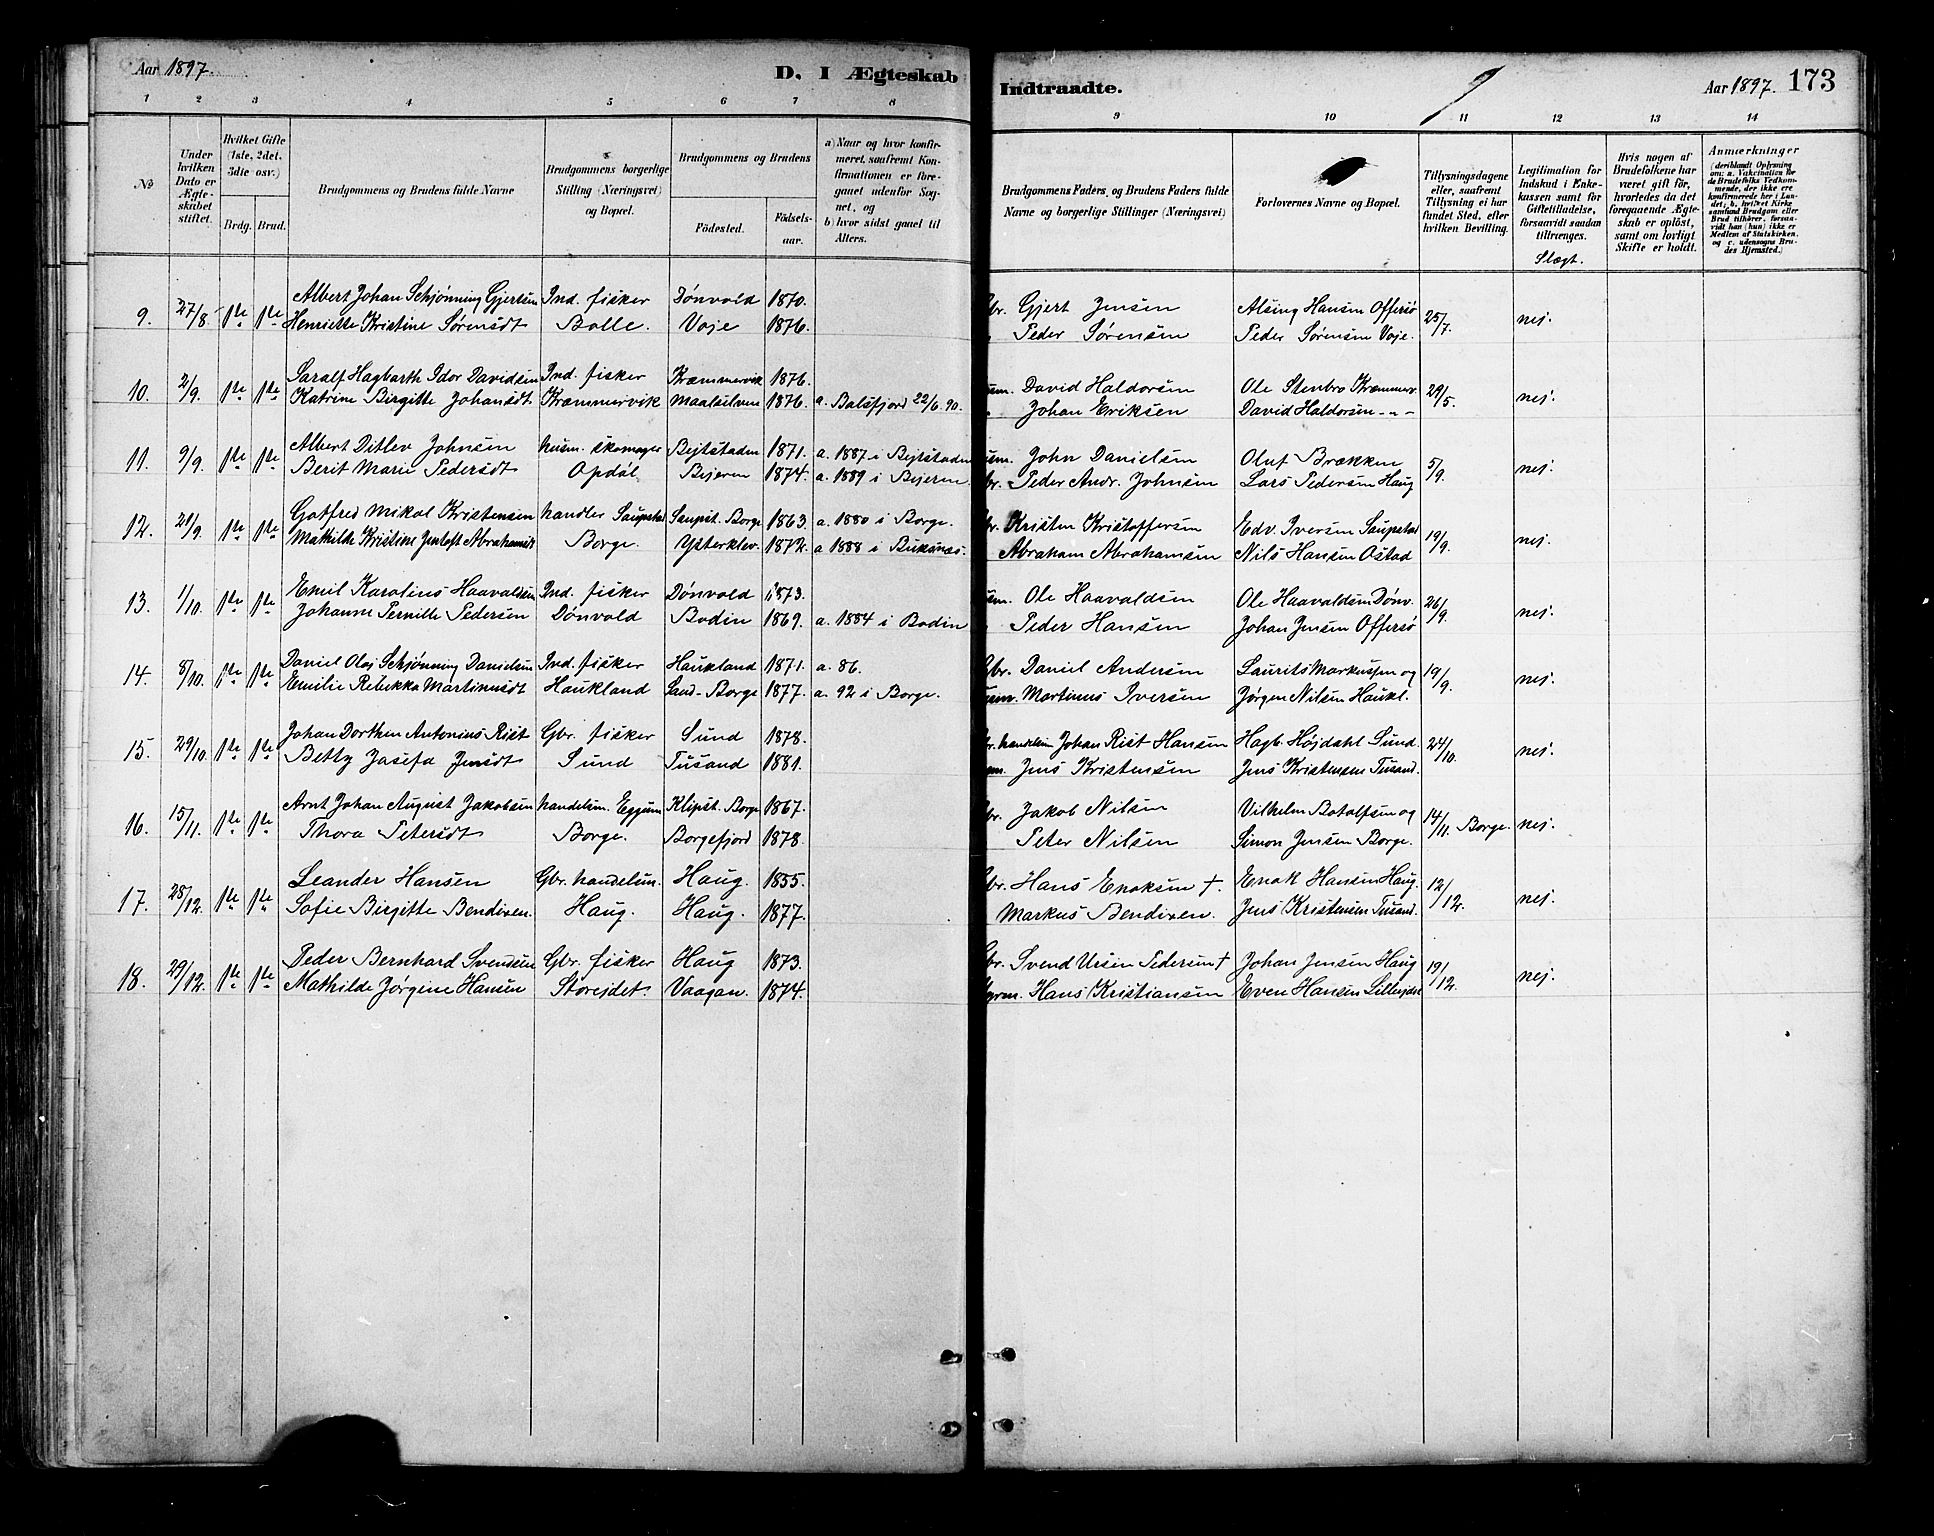 Aar 1897.
D. I Ægteskab
1 2 3 4 5 6 7 8
No
Under hvilken Dato er Ægteskabet stiftet.
Hvilket Gifte (1ste, 2det, 3die osv.)
Brdg. Brud.
Brudgommens og Brudens fulde Navne
Brudgommens borgerlige Stilling (Næringsvei) og Bopæl.
Brudgommens og Brudens
Fødested.
Fødselsaar.
a) Naar og hvor konfirmeret, saafremt Konfirmationen er foregaaet udenfor Sognet, og
b) hvor sidst gaaet til Alters.
9. 27/8. 1ste 1ste Albert Johan Schjønning Gjertsen Ind. fisker Dønvold 1870.
Henriette Kristine Sørensdt Bolle. Voje 1876.
10. 2/9. 1ste 1ste Saralf Hagbarth Idor Davidsen Ind. fisker Kræmmervik 1876.
Katrine Birgitte Johansdt Kræmmervik Maalselven 1876. a. Balsfjord 22/6. 90.
11. 9/9. 1ste 1ste Albert Ditlev Johnsen husm. skomager Bejtstaden 1871. a. 1887 i Bejtstaden
Berit Marie Pedersdt Opdøl Bejeren 1874. a. 1889 i Bejeren.
12. 21/9. 1ste 1ste Gotfred Mikal Kristensen handler Saupstad Saupst. Borge 1863. a. 1880 i Borge.
Mathilde Kristine Jentoft Abrahamsdt Borge. Ysterklev. 1872. a 1888 i Buksnæs.
13. 1/10. 1ste 1ste Emil Karolius Haavaldsen Ind. fisker Dønvold 1873.
Johanne Pernille Pedersen Dønvold Bodin 1869. a. 1884 i Bodin
14. 8/10. 1ste 1ste Daniel Olai Schjønning Danielsen Ind. fisker Haukland 1871. a. 86.
Emilie Rebekka Martinusdt Haukland Sand-Borge 1877. a. 92 i Borge.
15. 29/10. 1ste 1ste Johan Dorthen Antonius Rist Gbr. fisker Sund 1878.
Betty Jasefa Jensdt Sund Tusand 1881.
16. 15/11. 1ste 1ste Arnt Johan August Jakobsen handelsm. Eggum Klipst. Borge 1867.
Thora Petersdt Borge. Borgefjord 1878.
17. 28/12. 1ste 1ste Leander Hansen Gbr. handelsm. Haug. 1855.
Sofie Birgitte Bendixen. Haug. Haug. 1877.
18. 29/12. 1ste 1ste Peder Bernhard Svendsen Gbr. fisker Haug 1873.
Mathilde Jørgine Hansen Storejdet. Vaagan. 1874.
Indtraadte.
Aar 1897. 173
9 10 11 12 13 14
Brudgommens Faders, og Brudens Faders fulde Navne og borgerlige Stillinger (Næringsvei)
Forlovernes Navne og Bopæl.
Tillysningsdagene eller, saafremt Tillysning ei har fundet Sted, efter hvilken Bevilling.
Legitimation for Indskud i Enkekassen samt for Giftetilladelse, forsaavidt saadan tiltrænges.
Slægt.
Hvis nogen af Brudefolkene har været gift før, hvorledes da det foregaaende Ægteskab er opløst, samt om lovligt Skifte er holdt.
Anmærkninger
(deriblandt Oplysning om: a. Vakcination for de Brudefolks Vedkommende, der ikke ere konfirmerede her i Landet; b. hvilket Kirkesamfund Brudgom eller Brud tilhører, forsavidt han (hun) ikke er Medlem af Statskirken, og c. udensogns Brudes Hjemsted.)
Gjert Jensen Alsing Hansen Offersø 25/7. nej.
Peder Sørensen Peder Sørensen Voje.
David Haldorsen Ole Stenbro Kræmmerv. 29/5. nej.
Johan Eriksen David Haldorsen - " -
John Danielsen Oluf Brækken 5/9. nej.
Peder Andr. Johnsen Lars Pedersen Haug
Kristen Kristoffersen Edv. Iversen Saupstad 19/9. nej.
Abraham Abrahamsen Nils Hansen Ostad
Ole Haavaldsen Ole Haavaldsen Dønv. 26/9. nej.
Peder Hansen Johan Jensen Offersø
Gbr. Daniel Andersen Laurits Markussen og 19/9. nej.
Martinus Iversen Jørgen Nilsen Haukl.
handelsm Johan Rist Hansen Hagb. Højdahl Sund. 24/10. nej.
Jens Kristensen Jens Kristensen Tusand.
Jakob Nilsen Vilhelm Botolfsen og 14/11. Borge. nej.
Peter Nilsen Simon Jensen Borge.
Gbr. Hans Enoksen †. Enok Hansen Haug. 12/12. nej.
Markus Bendixen. Jens Kristensen Tusand.
Gbr. Svend Ursin Pedersen † Johan Jensen Haug 19/12. nej.
Hans Kristiansen Even Hansen Lillejdet